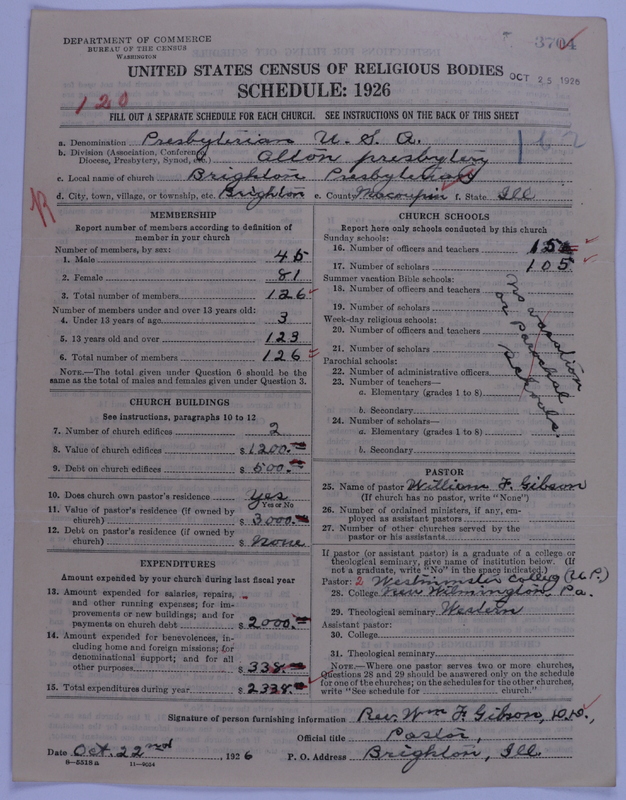 DEPARTMENT OF COMMERCE
BUREAU OF THE CENSUS
WASHINGTON
3704
UNITED STATES CENSUS OF RELIGIOUS BODIES
OCT 25 1926
SCHEDULE: 1926
120
FILL OUT A SEPARATE SCHEDULE FOR EACH CHURCH. SEE INSTRUCTIONS ON THE BACK OF THIS SHEET
162
a. Denomination Presbyterian U. S. A.
b. Division (Association, Conference, Diocese, Presbytery, Synod, etc.) Alton presbytery
c. Local name of church Brighton Presbyterian
d. City, town, village, or township, etc. Brighton e. County Macoupin f. State Ill
MEMBERSHIP
Report number of members according to definition of
member in your church
Number of members, by sex:
1. Male 45
2. Female 81
3. Total number of members 126
Number of members under and over 13 years old:
4. Under 13 years of age 3
5. 13 years old and over 123
6. Total number of members 126
NOTE.—The total given under Question 6 should be
same as the total of males and females given under Question 3.
CHURCH BUILDINGS
See instructions, paragraphs 10 to 12
7. Number of church edifices 2
8. Value of church edifices $ 1200.
9. Debt on church edifices $ 500.
10. Does church own pastor's residence yes
Yes or No
11. Value of pastor's residence (if owned by
church) $ 3000.
12. Debt on pastor's residence (if owned by
church) $ none
EXPENDITURES
Amount expended by your church during last fiscal year
13. Amount expended for salaries, repairs,
and other running expenses; for im-
provements or new buildings; and for
payments on church debt $ 2000.
14. Amount expended for benevolences, in-
cluding home and foreign missions; for
denominational support; and for all
other purposes $ 338.
15. Total expenditures during year $ 2338.
CHURCH SCHOOLS
Report here only schools conducted by this church
Sunday schools:
16. Number of officers and teachers 15
17. Number of scholars 105
Summer vacation Bible schools:
18. Number of officers and teachers
19. Number of scholars
Week-day religious schools:
20. Number of officers and teachers
21. Number of scholars
Parochial schools:
22. Number of administrative officers
23. Number of teachers—
a. Elementary (grades 1 to 8)
b. Secondary
24. Number of scholars—
a. Elementary (grades 1 to 8)
b. Secondary
no vacation
or parochial
schools.
PASTOR
25. Name of pastor William F. Gibson
(If church has no pastor, write "None")
26. Number of ordained ministers, if any, em-
ployed as assistant pastors
27. Number of other churches served by the
pastor or his assistants
If pastor (or assistant pastor) is a graduate of a college or
theological seminary, give name of institution below. (If
not a graduate, write "No" in the space indicated.)
Pastor: 2 Westminster College (U. P.)
28. College New Wilmington, Pa.
29. Theological seminary Western
Assistant pastor:
30. College
31. Theological seminary
NOTE.—Where one pastor serves two or more churches,
Questions 28 and 29 should be answered only on the schedule
for one of the churches; on the schedules for the other churches,
write "See schedule for church."
Signature of person furnishing information Rev. Wm F. Gibson, D.D.,
Official title Pastor,
Date Oct. 22nd, 1926 P. O. Address Brighton, Ill
8—5518a 11—9034